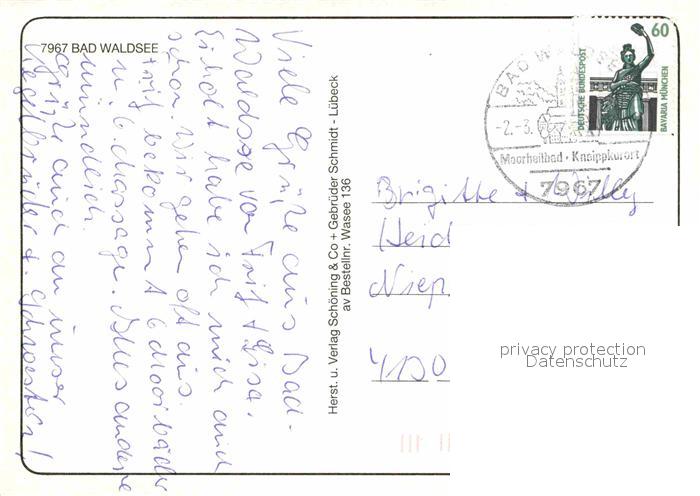 7967 BAD WALDSEE
Viele Grüße aus Bad-
Waldsee von Fritz + Lisa.
Erholt habe ich mich auch
schon. Wir gehen oft aus.
Fritz bekommt 6 Moorbäder
u. 6 Massage. Alles andere
mündlich.
Grüße auch an unser
+ Schwester!
Herst. u. Verlag Schöning & Co + Gebrüder Schmidt - Lübeck
av Bestellnr. Wasee 136
BAD WALDSEE
-2.-3.
Moorheilbad · Kneippkurort
7967
60
DEUTSCHE BUNDESPOST
BAVARIA MÜNCHEN
Brigitte + Willy
Heid
Niep
4130
privacy protection
Datenschutz